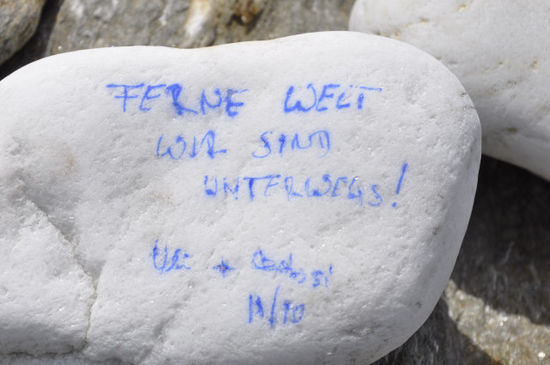 FERNE WELT
WIR SIND
UNTERWEGS!
Uli +
11/10